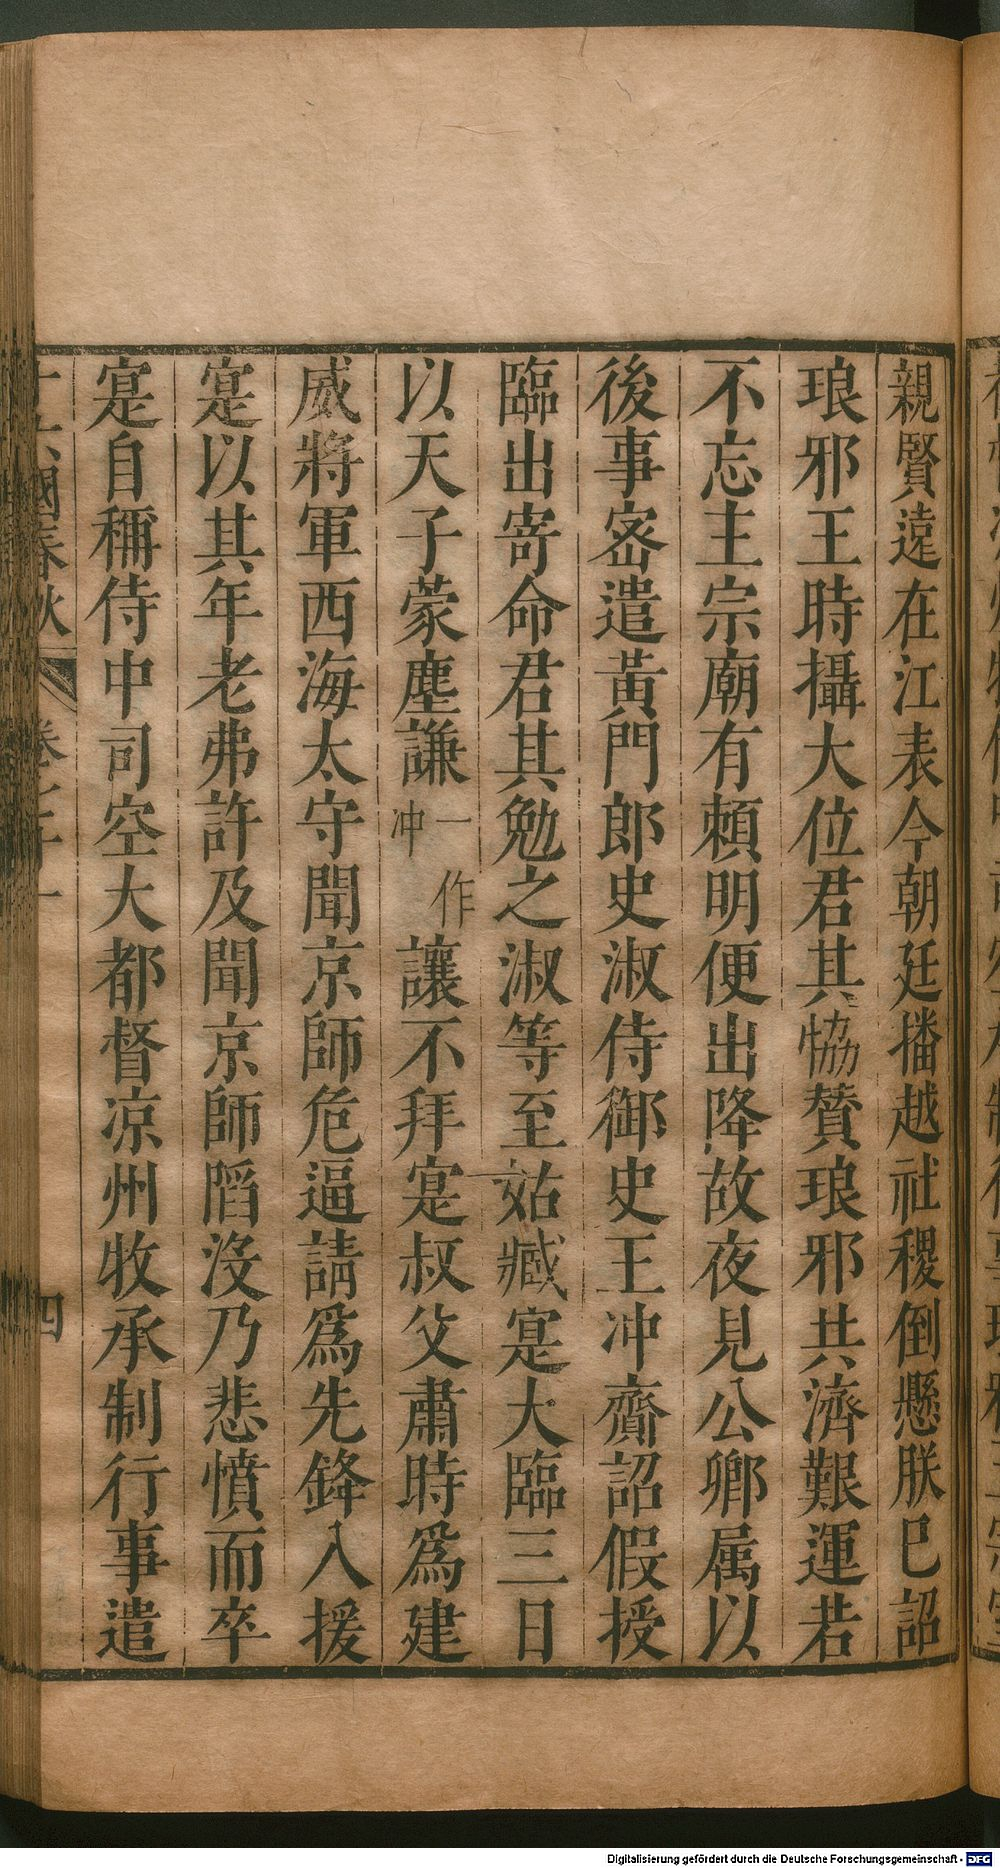 親賢遠在江表今朝廷播越社稷倒懸朕巳詔
琅邪王時攝大位君其恊贊琅邪共濟艱運若
不忘主宗廟有賴明便出降故夜見公卿属以
後事宻遣黃門郎史淑侍御史王冲齎詔假授
臨出寄命君其勉之淑等至姑臧寔大臨三日
以天子蒙塵謙一作冲讓不拜寔叔父肅時爲建
威將軍西海太守聞京師危逼請爲先鋒入援
寔以其年老弗許及聞京師䧟沒乃悲憤而卒
寔自稱侍中司空大都督凉州牧承制行事遣
十六國春秋 卷七十一 四
Digitalisierung gefördert durch die Deutsche Forschungsgemeinschaft - DFG